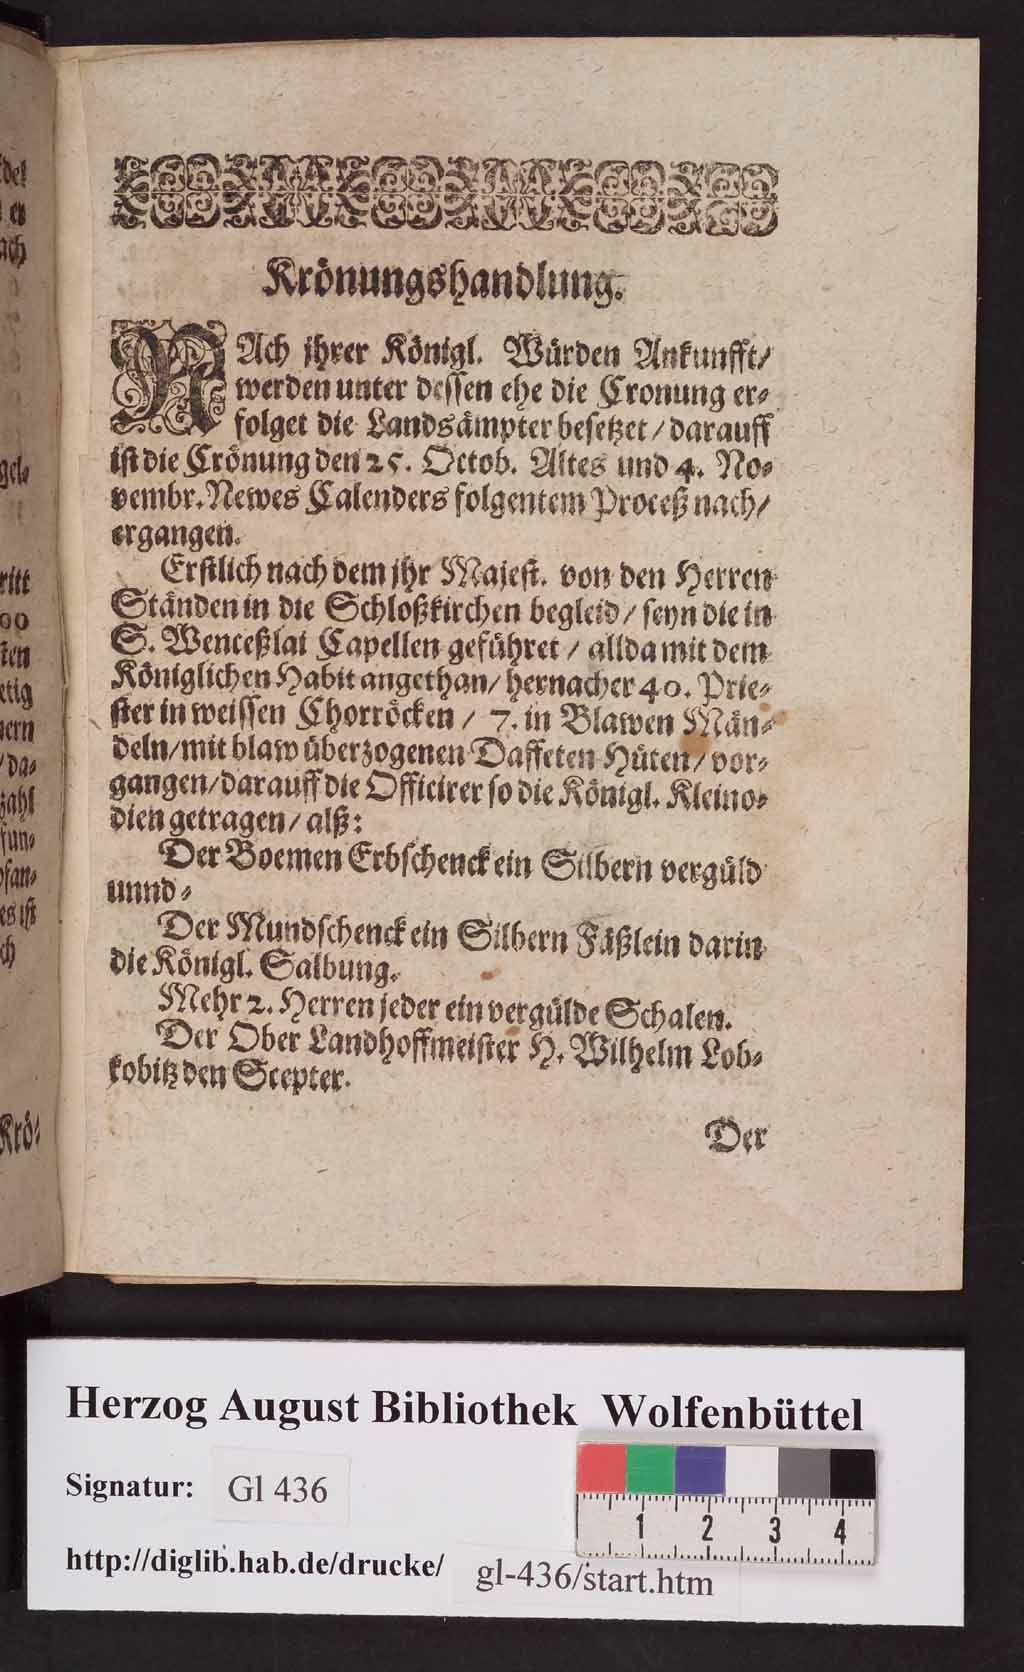 Krönungshandlung.
NAch jhrer Königl. Würden Ankunfft/
werden unter dessen ehe die Cronung er-
folget die Landsämpter besetzet / darauff
ist die Crönung den 25. Octob. Altes und 4. No-
vembr. Newes Calenders folgentem Proceß nach/
ergangen.
Erstlich nach dem jhr Majest. von den Herren
Ständen in die Schloßkirchen begleid / seyn die in
S. Wenceßlai Capellen geführet / allda mit dem
Königlichen Habit angethan / hernacher 40. Prie-
ster in weissen Chorröcken / 7. in Blawen Män-
deln / mit blaw überzogenen Daffeten Hüten / vor-
gangen / darauff die Officirer so die Königl. Kleino-
dien getragen / alß:
Der Boemen Erbschenck ein Silbern vergüld
unnd-
Der Mundschenck ein Silbern Fäßlein darin
die Königl. Salbung.
Mehr 2. Herren jeder ein vergülde Schalen.
Der Ober Landhoffmeister H. Wilhelm Lob-
kobitz den Scepter.
Der
ach
gel-
ritt
00
sten
etig
nern
/ da-
zahl
fun-
pfan-
es ist
ch
Krö-
Herzog August Bibliothek Wolfenbüttel
Signatur: Gl 436
1 2 3 4
http://diglib.hab.de/drucke/ gl-436/start.htm